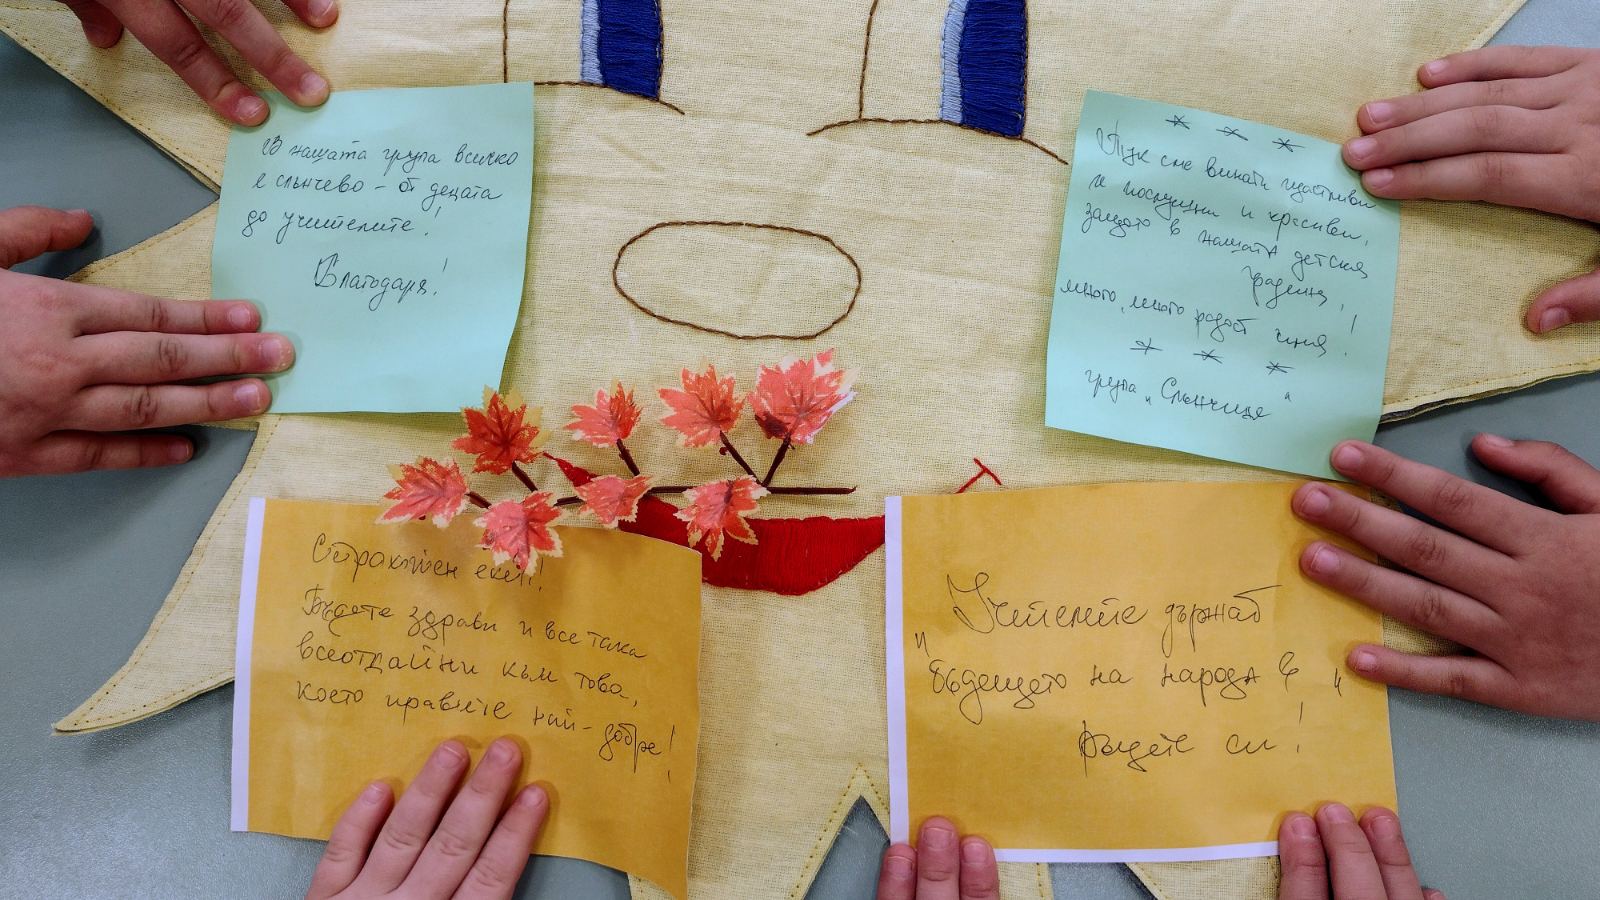 В нашата група всичко
е слънчево - от децата
до учителите!
Благодаря!
* * *
Тук сме винаги щастливи
и послушни и красиви,
защото в нашата детска
градина,
много, много радост има!
* * *
група „Слънчице"
Страхотен екип!
Бъдете здрави и все така
всеотдайни към това,
което правите най-добре!
Учителите държат
"бъдещето на народа в
ръцете си!"